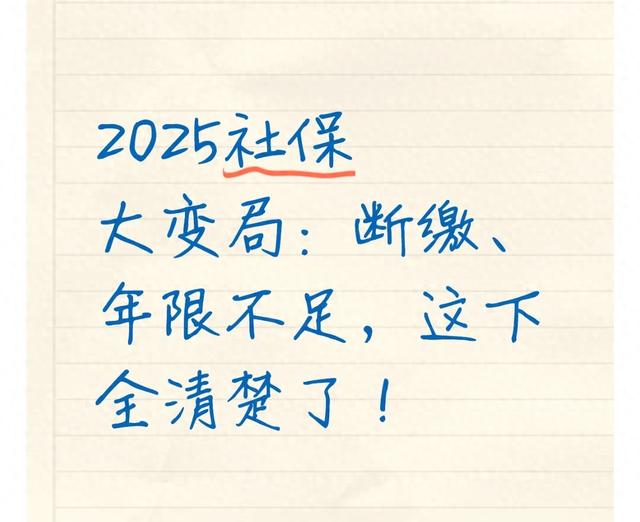 2025社保
大变局：断缴、
年限不足，这下
全清楚了！